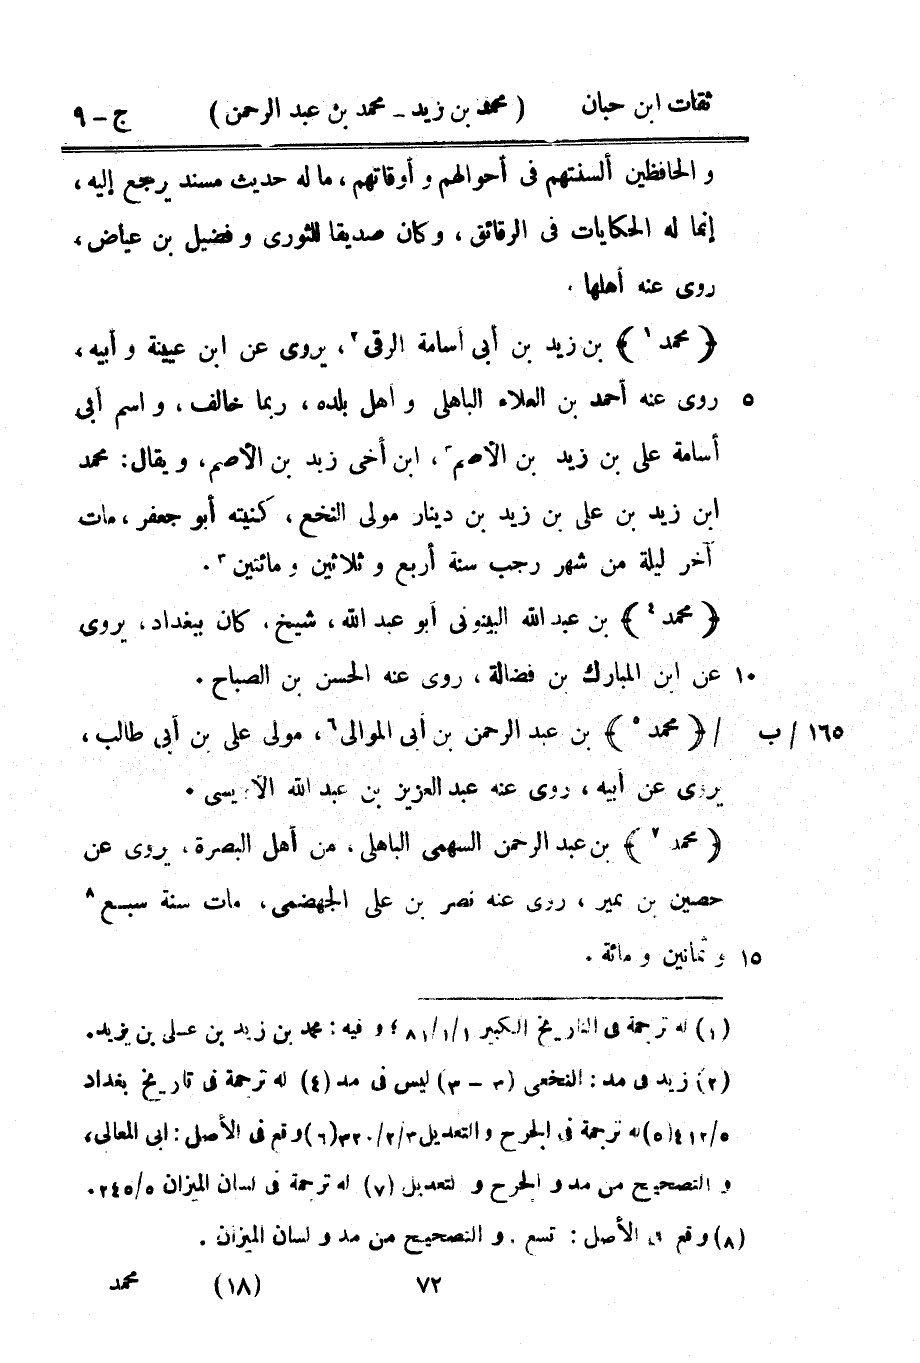 ثقات ابن حبان ( محمد بن زيد - محمد بن عبد الرحمن ) ج - ٩
و الحافظين ألسنتهم فى أحوالهم و أوقاتهم ، ما له حديث مسند يرجع إليه ،
إنما له الحكايات فى الرقائق ، وكان صديقا للثورى و فضيل بن عياض ،
روى عنه أهلها .
﴿ محمد ١ ﴾ بن زيد بن أبى أسامة الرقى ٢ ، يروى عن ابن عيينة و أبيه ،
٥ روى عنه أحمد بن العلاء الباهلى و أهل بلده ، ربما خالف ، و اسم أبى
أسامة على بن زيد بن الأصم ٣ ، ابن أخى زيد بن الأصم ، و يقال : محمد
ابن زيد بن على بن زيد بن دينار مولى النخع ، كنيته أبو جعفر ، مات
آخر ليلة من شهر رجب سنة أربع و ثلاثين و مائتين ٣ .
﴿ محمد ٤ ﴾ بن عبد الله البينونى أبو عبد الله ، شيخ ، كان ببغداد ، يروى
١٠ عن ابن المبارك بن فضالة ، روى عنه الحسن بن الصباح .
١٦٥ / ب / ﴿ محمد ٥ ﴾ بن عبد الرحمن بن أبى الموالى ٦ ، مولى على بن أبى طالب ،
يروى عن أبيه ، روى عنه عبد العزيز بن عبد الله الأويسى .
﴿ محمد ٧ ﴾ بن عبد الرحمن السهمى الباهلى ، من أهل البصرة ، يروى عن
حصين بن نمير ، روى عنه نصر بن على الجهضمى ، مات سنة سبع ٨
١٥ و ثمانين و مائة .
(١) له ترجمة فى التاريخ الكبير ١/١/٨١ ؛ و فيه : محمد بن زيد بن على بن يزيد .
(٢) زيد فى مد : النخعى (٣ - ٣) ليس فى مد (٤) له ترجمة فى تاريخ بغداد
٤١٢/٥ (٥) له ترجمة فى الجرح و التعديل ٣/٢/٣٢٠ (٦) و قع فى الأصل : ابى المعالى ،
و التصحيح من مد و الجرح و التعديل (٧) له ترجمة فى لسان الميزان ٢٤٥/٥ .
(٨) و قع فى الأصل : تسع . و التصحيح من مد و لسان الميزان .
٧٢ (١٨) محمد